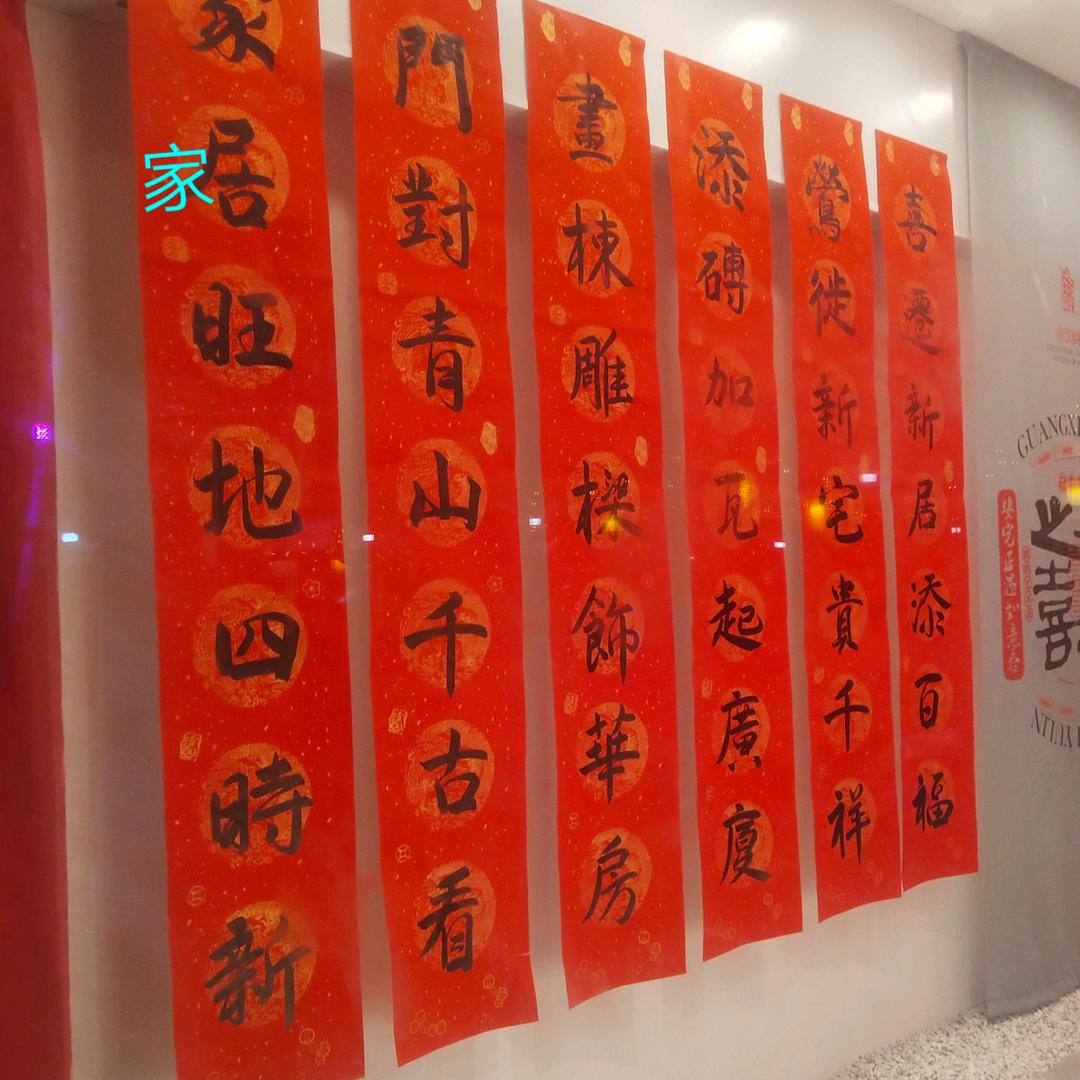 喜遷新居添百福
鶯徙新宅貴千祥
添磚加瓦起廣廈
畫棟雕樑飾華房
門對青山千古看
家居旺地四時新
家